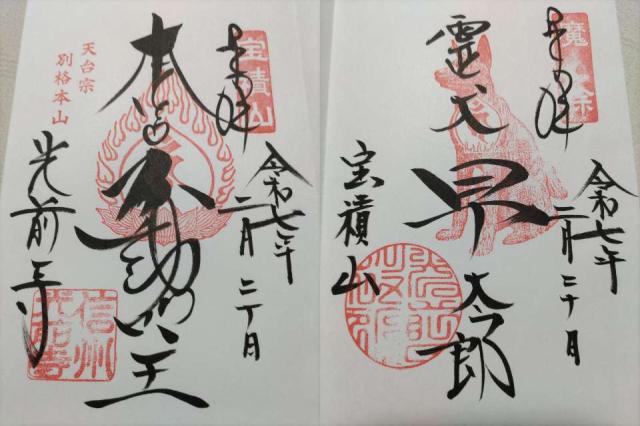 奉拝
宝積山
令和七年
二月二十日
本尊不動明王
天台宗
別格本山
光前寺
信州
光前寺
奉拝
魔除
令和七年
二月二十日
霊犬早太郎
宝積山